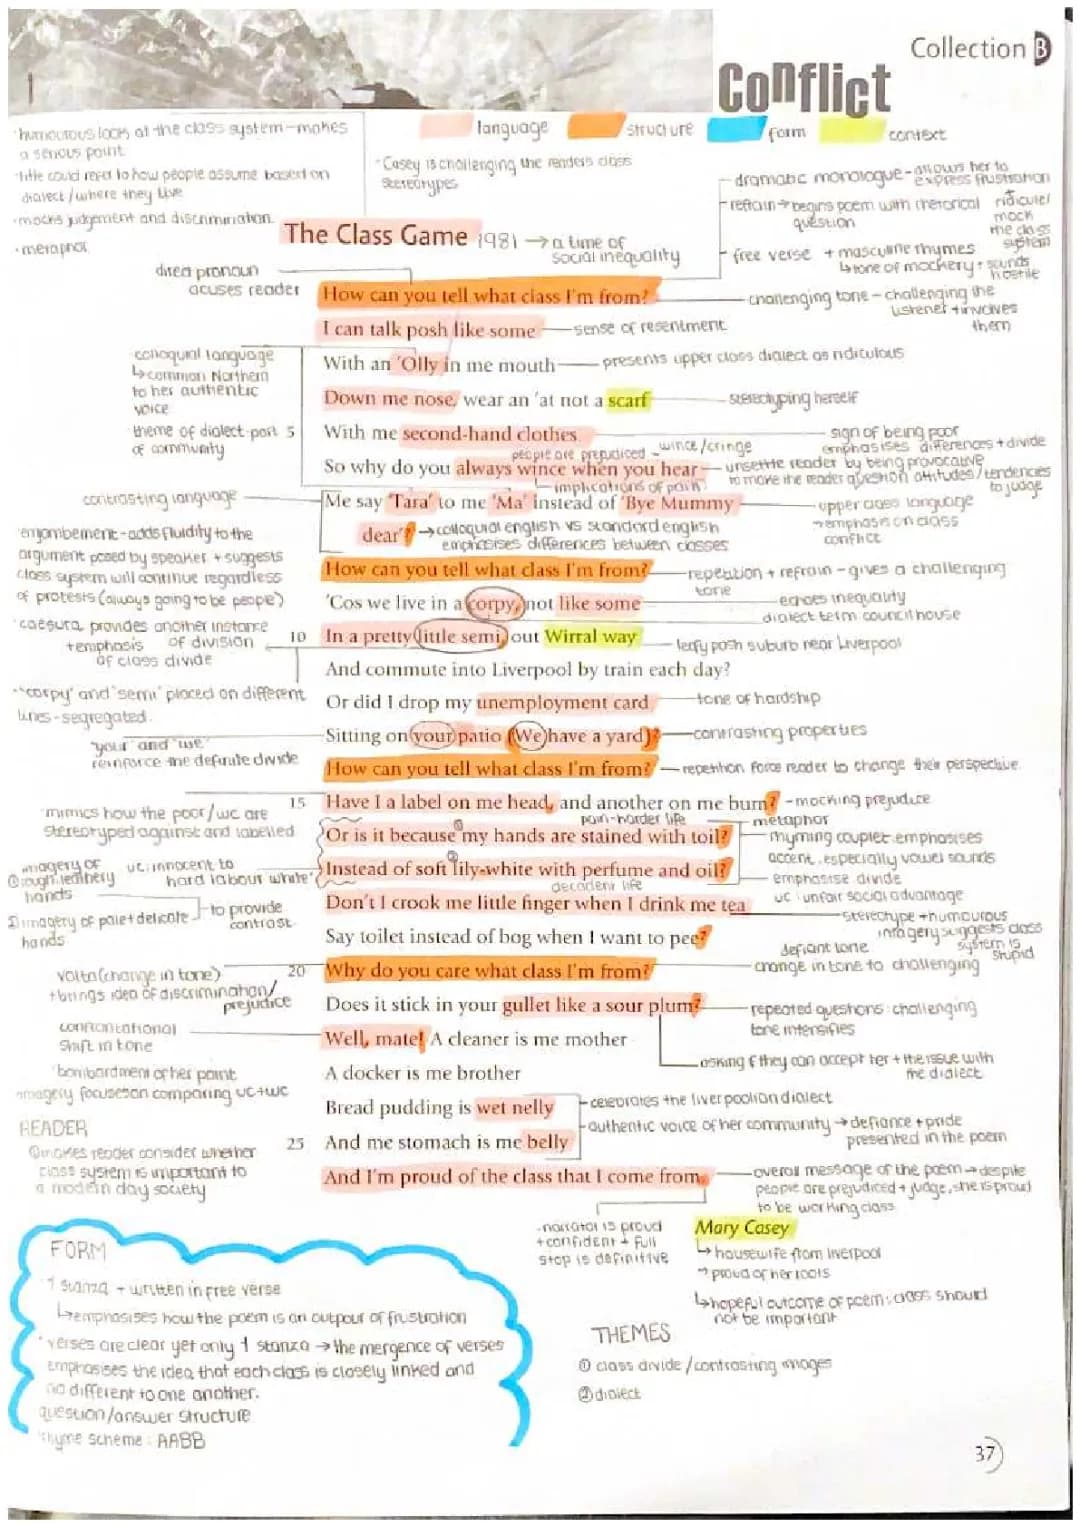 Collection B
Conflict
language
structure
form
context
·humourous look at the class system-makes
a serious point
·title could refer to how people assume based on
dialect/where they live
·mocks judgement and discrimination.
·metaphor
·Casey is challenging the readers class
stereotypes
dramatic monologue-allows her to
express frustration
refrain→begins poem with rhetorical
question
ridicule/
mock
the class
system
free verse + masculine rhymes
↳tone of mockery + sounds
hostile
The Class Game 1981 → a time of
social inequality
direct pronoun
acuses reader
How can you tell what class I'm from?
challenging tone - challenging the
listener + involves
them
I can talk posh like some
sense of resentment
With an 'Olly in me mouth
presents upper class dialect as ridiculous
colloquial language
↳common Northern
to her authentic
voice
·theme of dialect-part
of community
Down me nose, wear an 'at not a scarf
stereotyping herself
5 With me second-hand clothes.
sign of being poor
emphasises differences + divide
people are prejudiced - wince/cringe
So why do you always wince when you hear
unsettle reader by being provocative
to make the reader question attitudes/tendencies
to judge
implications of pain
contrasting language
Me say 'Tara' to me 'Ma' instead of 'Bye Mummy
dear'?
→colloquial english vs standard english
emphasises differences between classes
upper class language
→emphasis on class
conflict
enjambement-adds fluidity to the
argument posed by speaker + suggests
class system will continue regardless
of protests (always going to be people)
How can you tell what class I'm from?
repetition + refrain - gives a challenging
tone
'Cos we live in a corpy, not like some
echoes inequality
dialect term council house
·caesura provides another instance
+emphasis of division
of class divide
10 In a pretty little semi, out Wirral way
leafy posh suburb near Liverpool
And commute into Liverpool by train each day?
·"corpy' and 'semi' placed on different
lines-segregated.
Or did I drop my unemployment card
tone of hardship
Sitting on your patio (We have a yard)?
contrasting properties
'your' and 'we'
reinforce the definite divide
How can you tell what class I'm from?
repetition force reader to change their perspective.
15 Have I a label on me head, and another on me bum?
-mocking prejudice
·mimics how the poor/wc are
stereotyped against and labelled
pain-harder life
metaphor
Or is it because my hands are stained with toil?
rhyming couplet emphasises
accent, especially vowel sounds
emphasise divide
imagery of
①rough, leathery
hands
uc: innocent to
hard labour 'white'
Instead of soft lily-white with perfume and oil?
decadent life
uc: unfair social advantage
②imagery of pale + delicate
hands
to provide
contrast.
Don't I crook me little finger when I drink me tea
stereotype + humourous
imagery suggests class
system is
stupid
Say toilet instead of bog when I want to pee?
defiant tone
change in tone to challenging
volta (change in tone)
+brings idea of discrimination/
prejudice
20 Why do you care what class I'm from?
Does it stick in your gullet like a sour plum?
repeated questions: challenging
tone intensifies
confrontational
shift in tone
Well, mate! A cleaner is me mother
asking if they can accept her + the issue with
the dialect
A docker is me brother
·bombardment of her point
imagery focuses on comparing uc+wc
Bread pudding is wet nelly
celebrates the liverpoolian dialect
authentic voice of her community → defiance + pride
presented in the poem
READER
①makes reader consider whether
class system is important to
a modern day society
25 And me stomach is me belly
And I'm proud of the class that I come from.
overall message of the poem → despite
people are prejudiced + judge, she is proud
to be working class
·narrator is proud
+confident + full
stop is definitive
Mary Casey
↳housewife from liverpool
→proud of her roots
↳hopeful outcome of poem: class should
not be important
FORM
·1 stanza - written in free verse
↳emphasises how the poem is an outpour of frustration
·verses are clear yet only 1 stanza → the mergence of verses
emphasises the idea that each class is closely linked and
no different to one another.
question/answer structure
rhyme scheme: AABB
THEMES
① class divide/contrasting images
② dialect
37